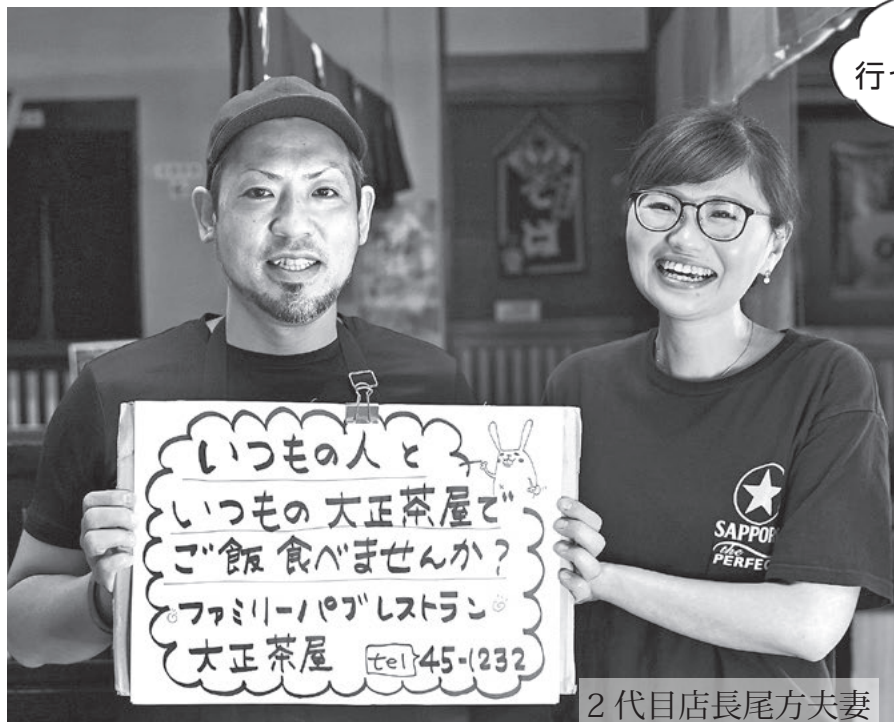 行っ
いつもの人と
いつもの大正茶屋で
ご飯食べませんか?
ファミリーパブレストラン
大正茶屋 tel 45-1232
SAPPOR
the
PERFEC
2代目店長尾方夫妻